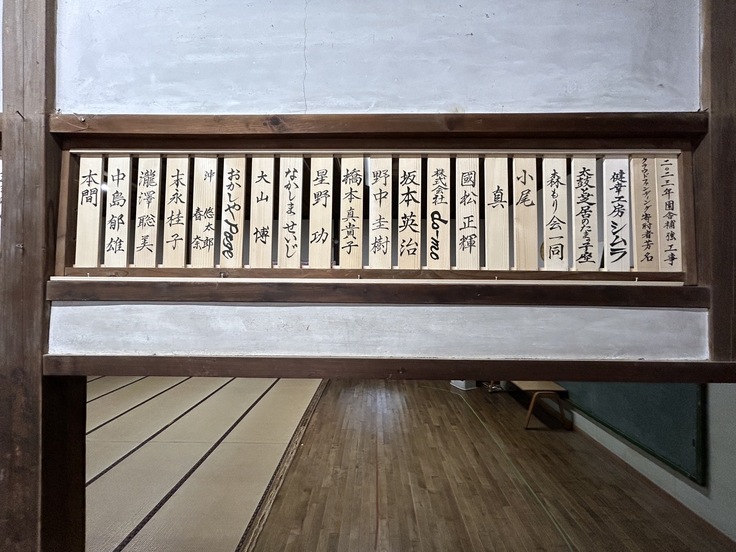 二〇二三年園舎補強工事
クラウドファンディング寄附者芳名
健幸工房シムラ
太鼓芝居のたまっ子座
森もり会一同
小尾
真
國松正輝
株式会社do-mo
坂本英治
野中圭樹
橋本真貴子
星野功
なかしませいじ
大山博
おかしやPePe
沖 悠太郎
春奈
末永桂子
瀧澤聡美
中島郁雄
本間